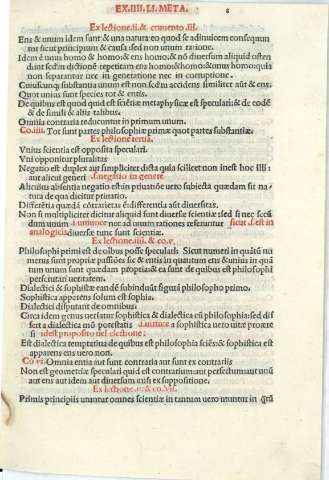 EX.IIII.LI.META. 8
Ex lectione.ii.& cōmento.iii.
Ens & unum idem sunt:& una natura eo quod se adinuicem consequun
tur sicut principium & causa:sed non unum ratione.
Idem é unus homo & homo:& ens homo:& nō diuersum aliquid osten
dunt secūdū dictionē repetitam ens homo:& homo:& unus homo:quia
non separantur nec in generatione nec in corruptione.
Cuiuscunqȝ substantia unum est non secūdū accidens similiter aūt & ens.
Quot unius sunt species tot & entis.
De quibus est quod quid est sciētiæ metaphysicæ est speculari:& de eodē
& de simili & aliis talibus.
Omnia contraria reducuntur in primum unum.
Co.iiii. Tot sunt partes philosophiæ primæ quot partes substantiæ.
Ex lectione tertia.
Vnius scientia est opposita speculari.
Vni opponitur pluralitas
Negatio est duplex aut simpliciter dicta quia scilicet non inest hoc illi:
aut alicui generi .i.negatio in genere
Alicuius absentia negatio est:in priuatiōe uero subiecta quædam sit na
tura de qua dicitur priuatio.
Differētia quædā cōtrarietas é:differentia aūt diuersitas.
Non si multipliciter dicitur aliquid sunt diuersæ scientiæ:sed si nec secū
dum unum .i.uniuoce nec ad unum rationes referuntur sicut .i.est in
analogicis:tunc sunt scientiæ.
Ex lectione.iiii.& co.v.
Philosophi primi est de oībus posse speculari. Sicut numeri in quātū nu
meri sunt propriæ passiões sic & entis in quantum ens:& unius in quan
tum unum sunt quædam propria:& ea sunt de quibus est philosophi
perscrutari ueritatem.
Dialectici & sophistæ eandē subinduūt figurā philosopho primo.
Sophistica apparens solum est sophia.
Dialectici disputant de omnibus.
Circa idem genus uersatur sophistica & dialectica cū philosophia:sed dif
fert a dialectica mō potestatis .i.uirtute a sophistica uero uitæ proære
si idest proposito uel electione:
Est dialectica temptatiua de quibus est philosophia sciēs:& sophistica est
apparens uero non.
Co.vi. Omnia entia aut sunt contraria aut sunt ex contrariis
Non est geometriæ speculari quid est contrarium:aut perfectum:aut unū
aut ens aut idem aut diuersum nisi ex suppositione.
Ex lectione.v.& co.vii.
Primis principiis utuntur omnes scientiæ in tantum uero utuntur in quā